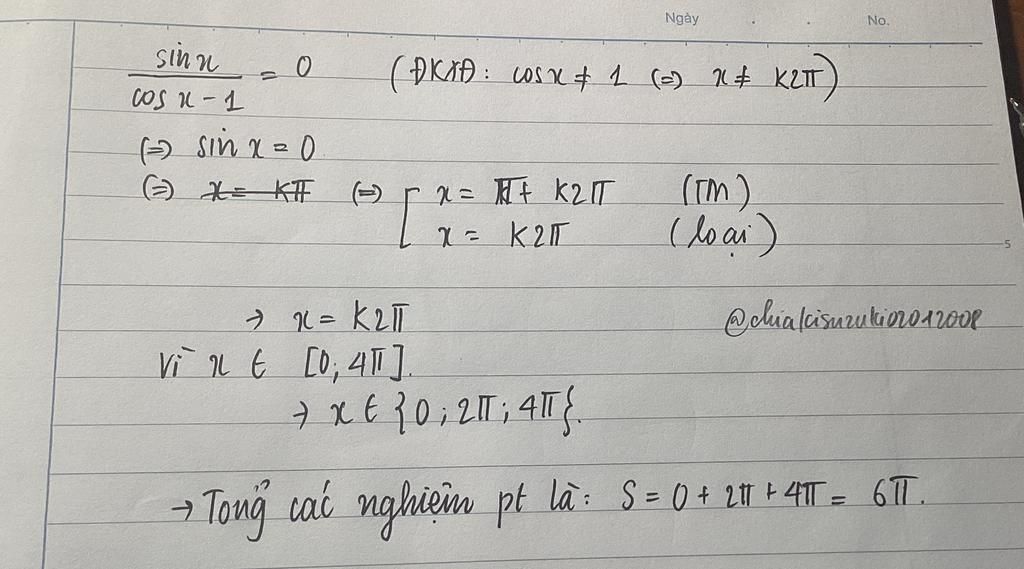 Ngày . . No.
sin x / cos x - 1 = 0 (ĐKXĐ: cosx ≠ 1 (=) x ≠ K2π)
(=) sin x = 0
(=) x = Kπ (=) [ x = π + K2π (TM)
x = K2π (loại)
5
→ x = K2π
@chiakisuzuki02012008
Vì x ∈ [0; 4π].
→ x ∈ {0; 2π; 4π}.
→ Tổng các nghiệm pt là: S = 0 + 2π + 4π = 6π.